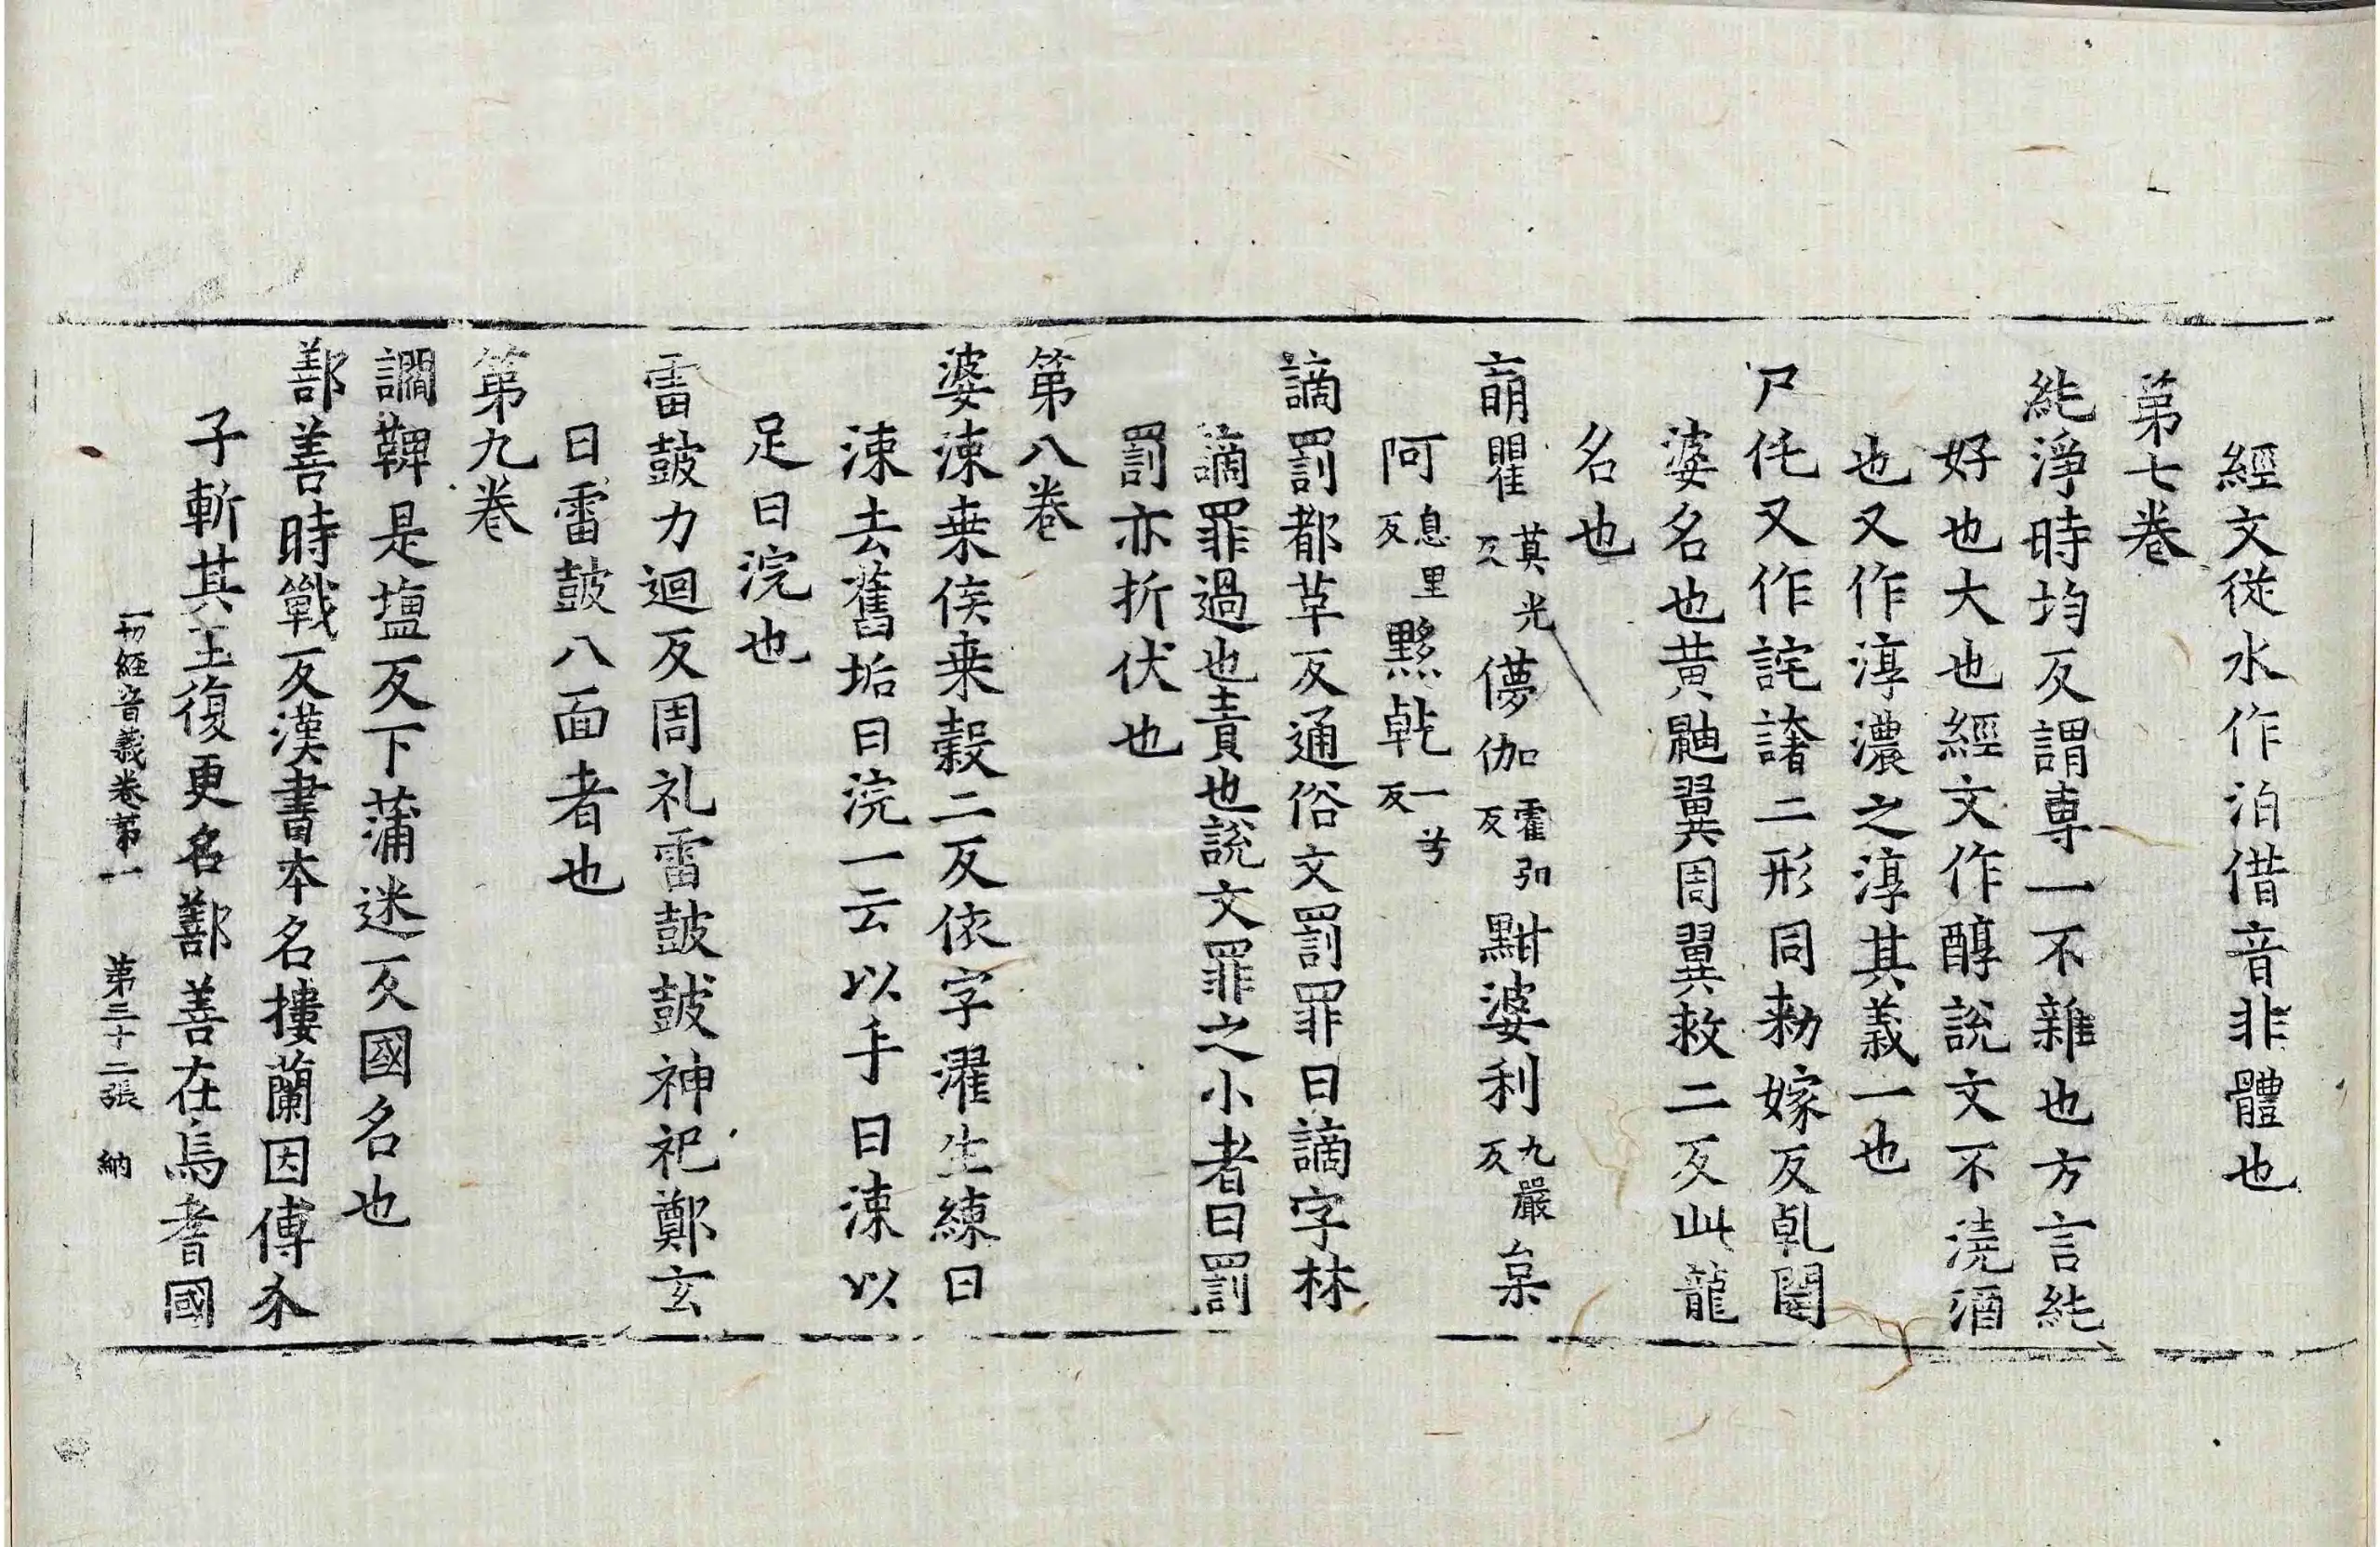 經文從水作泊借音非體也
第七卷
純淨時均反謂專一不雜也方言純
好也大也經文作醇說文不澆酒
也又作淳濃之淳其義一也
尸仛又作詫譇二形同勑嫁反乹闥
婆名也黄鼬翼周翼救二反此龍
名也
萠瞿莫光反儚伽霍弘反黚婆利九嚴反枲
阿息里反黟乹一兮反
謫罰都革反通俗文罰罪曰謫字林
謫罪過也責也說文罪之小者曰罰
罰亦折伏也
第八卷
婆涑桒侯桒糓二反依字濯生練曰
涑去舊垢曰浣一云以手曰涑以
足曰浣也
雷鼓力迴反周礼雷鼓鼓神祀鄭玄
曰雷鼓八面者也
第九卷
讇鞞是塩反下蒲迷反國名也
鄯善時戰反漢書本名摟蘭因傅介
子斬其王復更名鄯善在焉耆國
一切經音義卷第一　第三十二張　納